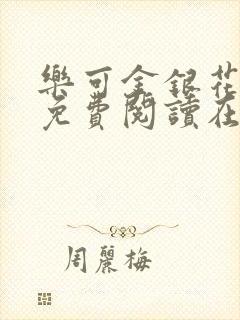 樂可金銀花
免費閱讀在
周麗梅